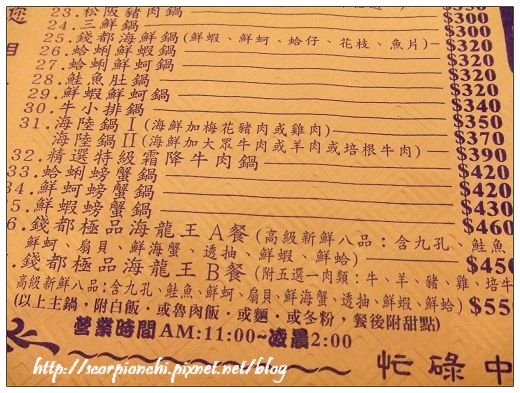 23.松阪豬肉鍋 $350
24.三鮮鍋 $300
25.錢都海鮮鍋(鮮蝦、鮮蚵、蛤仔、花枝、魚片) $320
26.蛤蜊鮮蝦鍋 $320
27.蛤蜊鮮蚵鍋 $320
28.鮭魚肚鍋 $320
29.鮮蝦鮮蚵鍋 $320
30.牛小排鍋 $340
31.海陸鍋Ⅰ(海鮮加梅花豬肉或雞肉) $350
海陸鍋Ⅱ(海鮮加大眾牛肉或羊肉或培根牛肉) $370
32.精選特級霜降牛肉鍋 $390
33.蛤蜊螃蟹鍋 $420
34.鮮蚵螃蟹鍋 $420
5.鮮蝦螃蟹鍋 $430
6.錢都極品海龍王A餐(高級新鮮八品:含九孔、鮭魚 $460
鮮蚵、扇貝、鮮海蟹、透抽、鮮蝦、鮮蛤) $450
錢都極品海龍王B餐(附五選一肉類:牛、羊、豬、雞、培牛
高級新鮮八品:含九孔、鮭魚、鮮蚵、扇貝、鮮海蟹、透抽、鮮蝦、鮮蛤) $55
(以上主鍋,附白飯‧或魯肉飯‧或麵‧或冬粉,餐後附甜點)
營業時間AM:11:00~凌晨2:00
忙碌中
http://scorpionchi.pixnet.net/blog